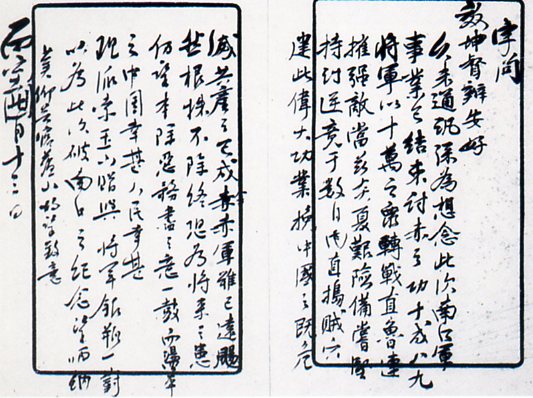 字问
效坤督辦安好
久未通訊深為想念此次南口軍
事業已結束討赤之功十成八九
將軍以十萬之眾轉戰直魯連
摧強敵當茲炎夏艱險備嘗堅
持討逆竟于數日內直搗賊穴
建此偉大功業挽中國之既危
滅共產之已成今赤軍雖已遠颺
然根株不除終恐為將來之患
仍望本除惡務盡之意一鼓而蕩平
之中國幸甚人民幸甚
現派索玉山贈與將軍銀瓶一對
以為此次破南口之紀念望哂納
山 致意
丙寅七月十三日